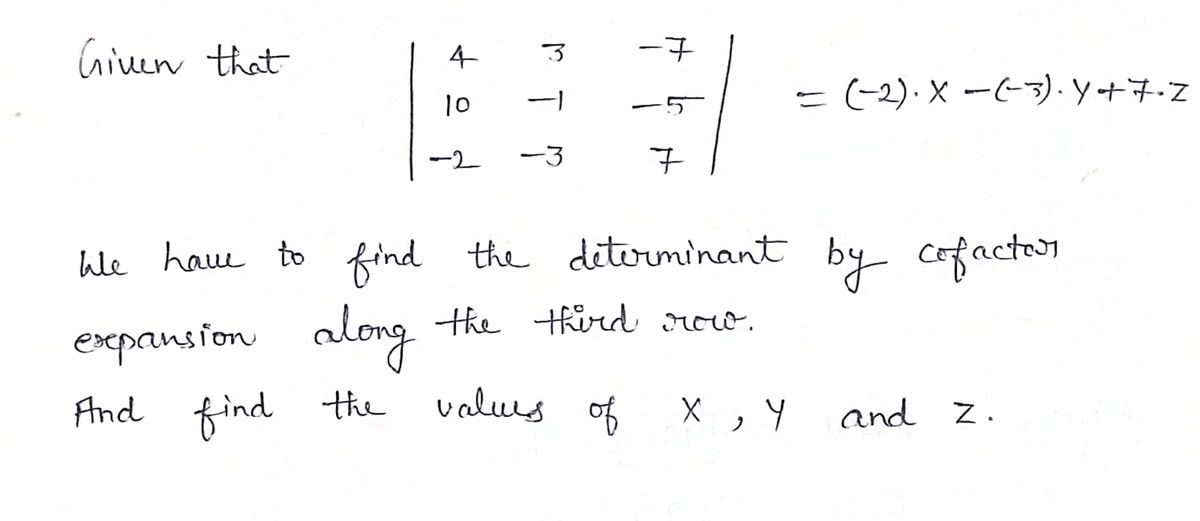 Given that | 4 3 -7 |
| 10 -1 -5 | = (-2).X -(-3).Y+7.Z
| -2 -3 7 |
We have to find the determinant by cofactor
expansion along the third row.
And find the values of X, Y and Z.